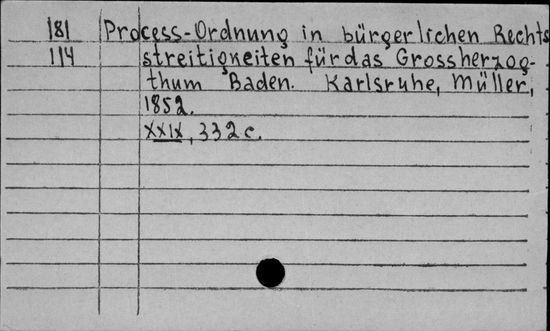 181 Process-Ordnung in bürgerlichen Rechts
114 streitigkeiten für das Grossherzog-
thum Baden. Karlsruhe, Müller,
1852.
XXIX, 332 c.